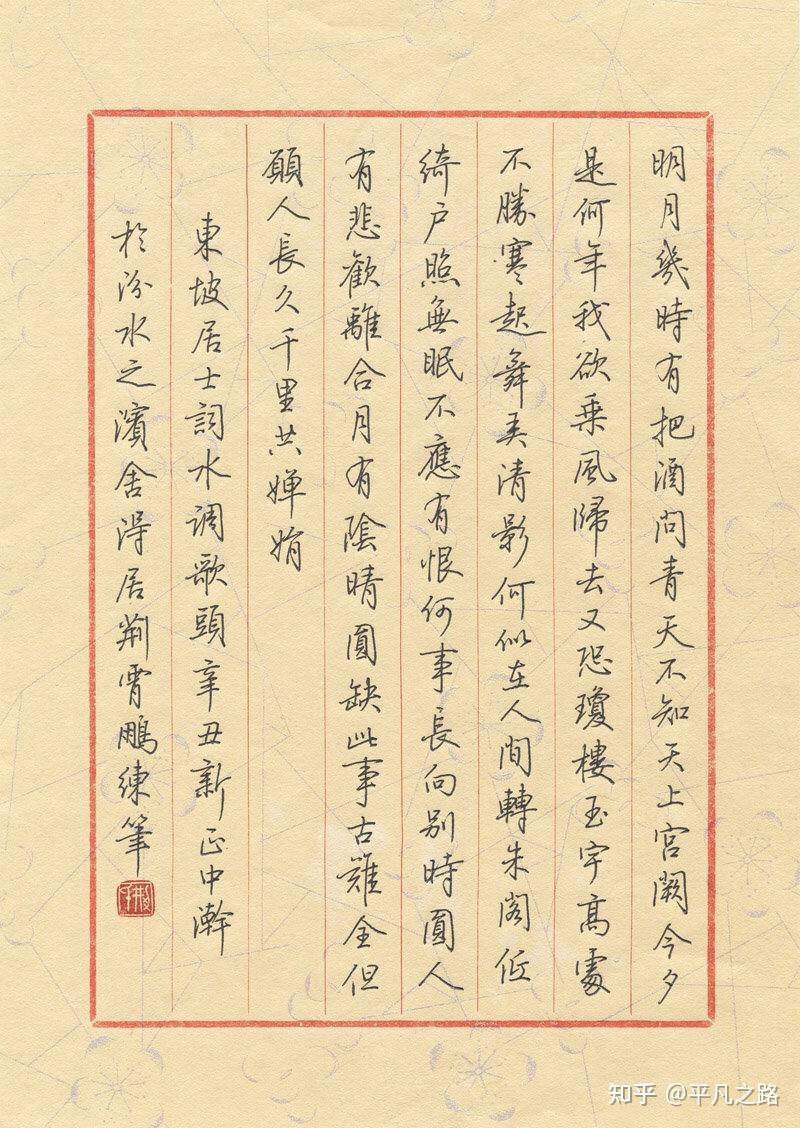 明月幾時有把酒問青天不知天上宮闕今夕
是何年我欲乘風歸去又恐瓊樓玉宇高處
不勝寒起舞弄清影何似在人間轉朱閣低
綺户照無眠不應有恨何事長向别時圓人
有悲歡離合月有陰晴圓缺此事古難全但
願人長久千里共嬋娟
東坡居士詞水调歌頭辛丑新正中澣
於汾水之濱舍得居荆霄鵬練筆
知乎 @平凡之路